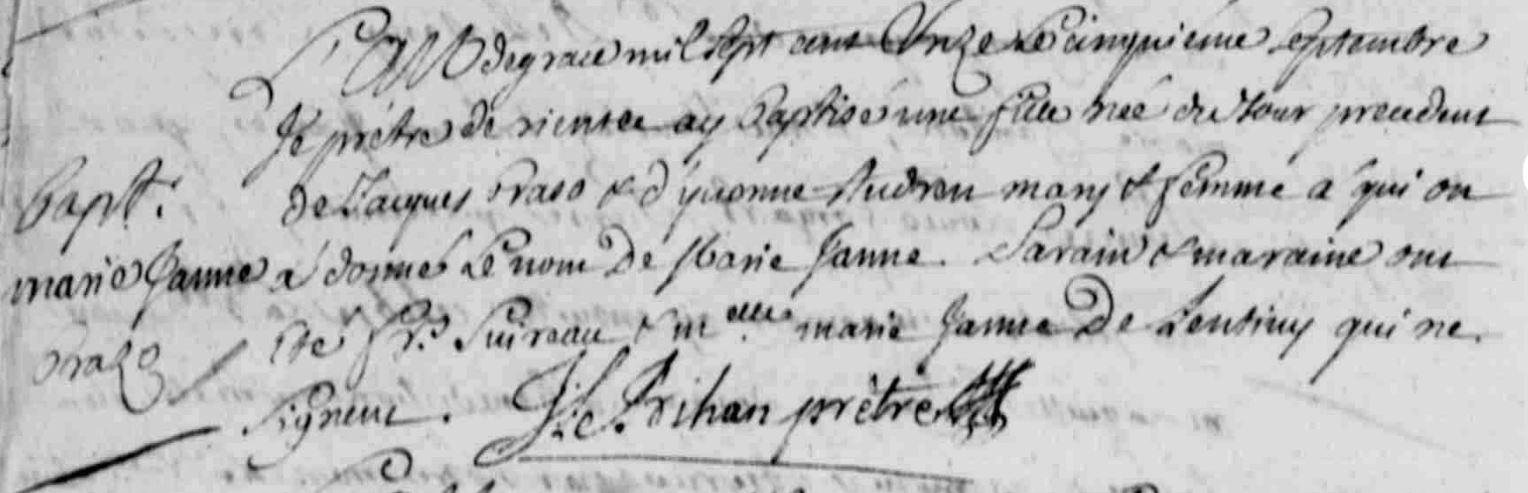 L'An de grace mil sept cent Onze Le cinquiéme septembre
Je prétre de rientec ay Baptisé une fille née du Jour precedent
Bapt. de Jacques Prazo & d'yvonne Audren mary & femme a qui on
marie Janne a donné Le nom De Marie Janne. Parain & maraine ont
Prazo été Fr. & m.elle marie Janne De qui ne
signent. J: Le Brihan prétre